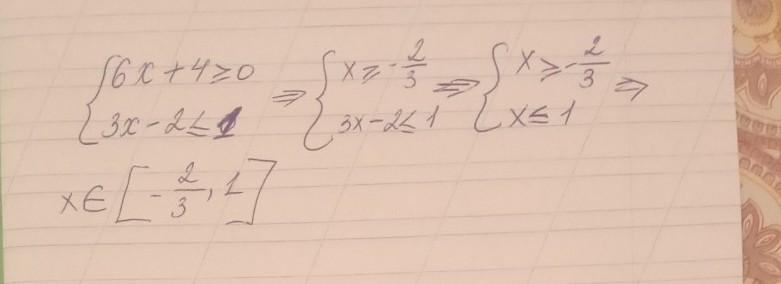 {6x+4≥0 ⇒ {x≥-2/3 ⇒ {x≥-2/3 ⇒
{3x-2≤1 {3x-2≤1 {x≤1
x∈[-2/3, 1]